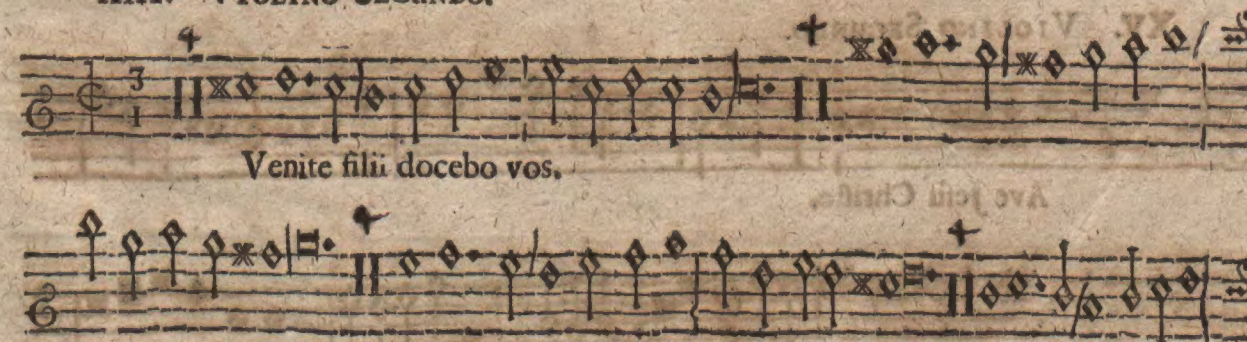 VIOLINO SECUNDO.
3
1
Venite filii docebo vos.